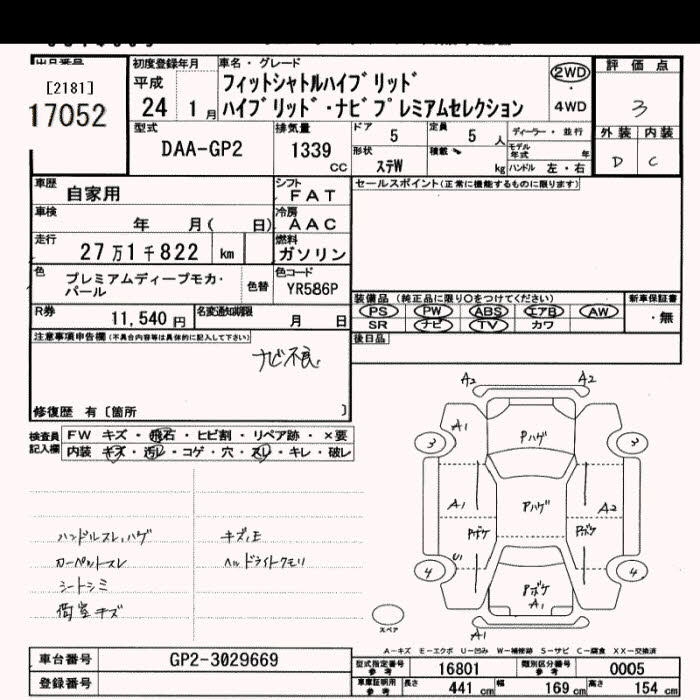 出品番号
[2181]
17052
初度登録年月
平成
24 1月
車名・グレード
フィットシャトルハイブリッド
ハイブリッド・ナビプレミアムセレクション
2WD
4WD
評価点
3
外装 内装
D C
型式
DAA-GP2
排気量
1339
CC
ドア
5
定員
5 人
形状
ステW
積載
kg
ディーラー・並行
モデル年式 年
ハンドル 左・右
車歴
自家用
シフト
FAT
セールスポイント(正常に機能するものに限ります)
車検
年 月( 日)
冷房
AAC
走行
27万1千822 km
燃料
ガソリン
色
プレミアムディープモカ・
パール
色替
色コード
YR586P
装備品(純正品に限り○をつけてください)
新車保証書
・無
PS PW ABS エアB AW
SR ナビ TV カワ
R券
11,540円
名変通知期限
月 日
後日品
注意事項申告欄(不具合内容等は具体的に記入して下さい)
ナビ不良
修復歴 有〔箇所 〕
検査員
記入欄
FW キズ・飛石・ヒビ割・リペア跡・×要
内装 キズ・汚レ・コゲ・穴・スレ・キレ・破レ
ハンドルスレ、ハゲ
カーペットスレ
シートシミ
荷室キズ
キズ、E
ヘッドライトクモリ
A2 A2
A1
3 Pハゲ 3
A1 Pハゲ A2
Pボケ Pボケ
U1
4 Pボケ 4
A1
スペア
A1
A-キズ E-エクボ U-凹み W-補修跡 S-サビ C-腐食 XX-交換済
車台番号
GP2-3029669
登録番号
型式指定番号
参考
16801
類別区分番号
参考
0005
車庫証明用
参考
長さ 441 cm 幅 169 cm 高さ 154 cm